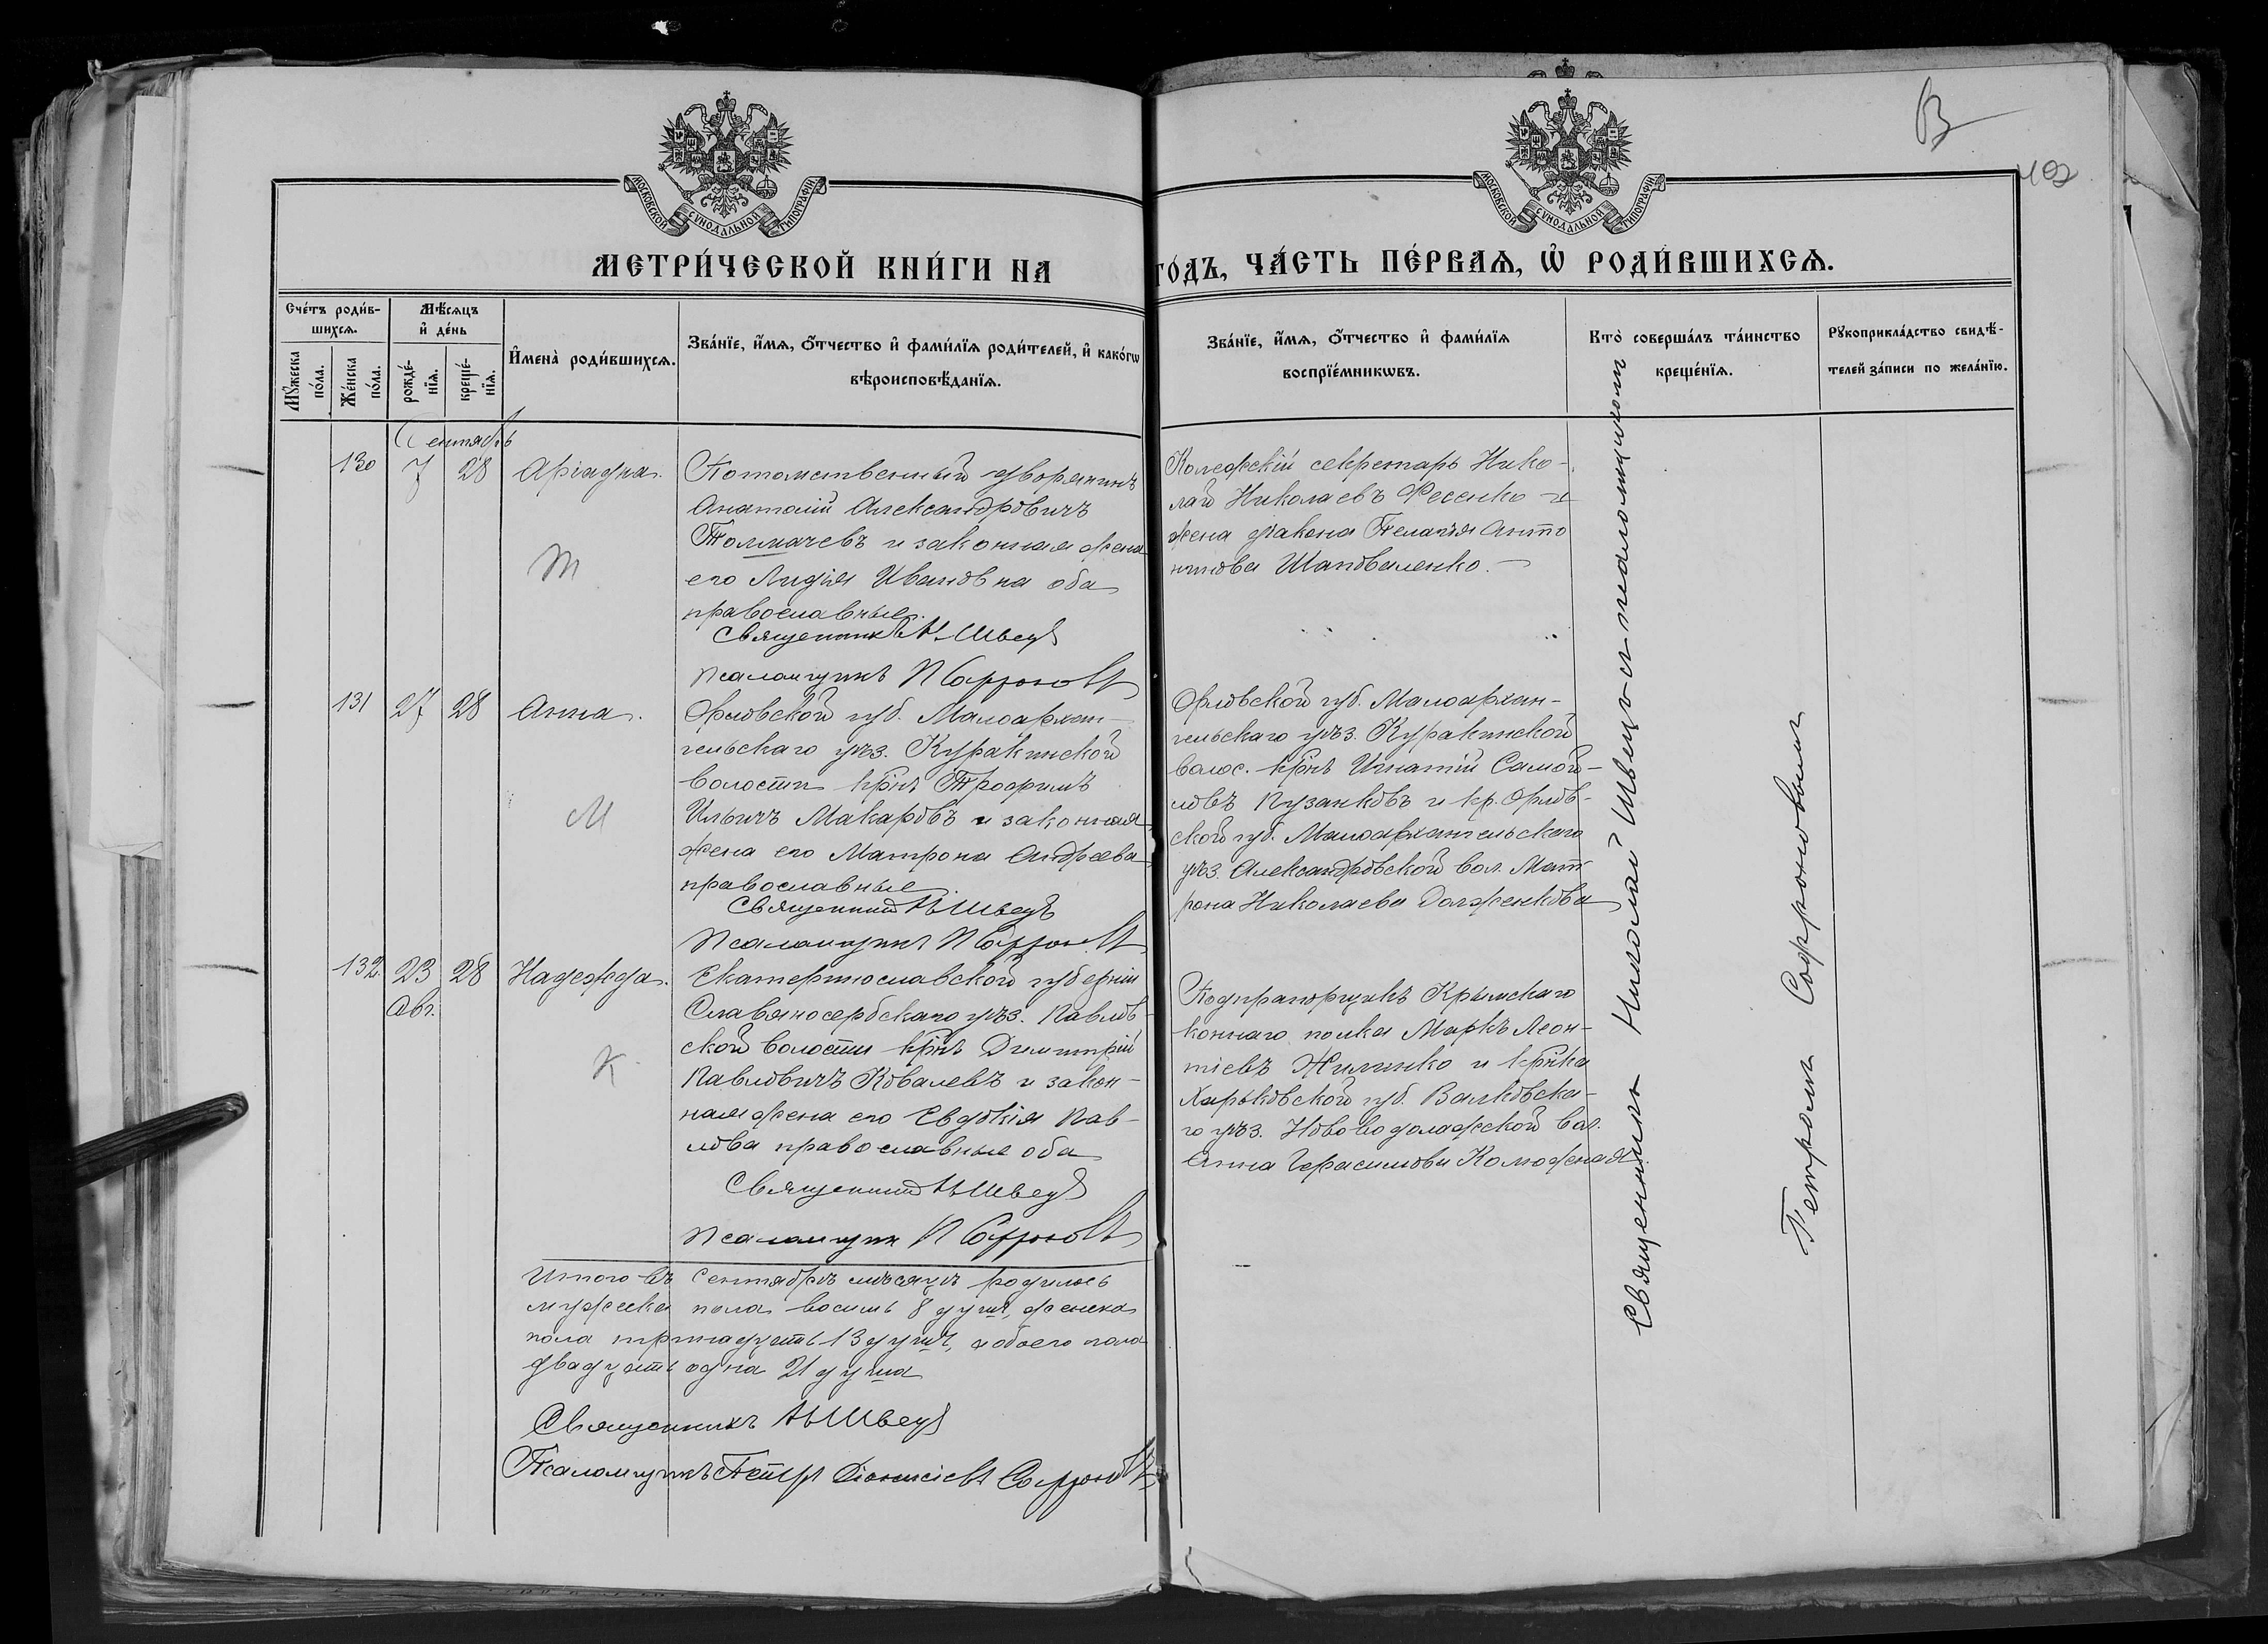 В
492
МОСКОВСКОЙ СѴНОДАЛЬНОЙ ТИПОГРАФІИ.
МОСКОВСКОЙ СѴНОДАЛЬНОЙ ТИПОГРАФІИ.
МЕТРИ́ЧЕСКОЙ КНИ́ГИ НА
ГО́ДЪ, ЧА́СТЬ ПЕ́РВАѦ, Ѡ҆ РОДИ́ВШИХСѦ.
Сче́тъ роди́в-
шихсѧ.
Мѣ́сѧцъ
и҆ де́нь
Мꙋ́жеска
по́ла.
Же́нска
по́ла.
рожде́-
нїѧ.
креще́-
нїѧ.
И҆мена̀ роди́вшихсѧ.
Зва́нїе, и҆́мѧ, ѻ҆́тчество и҆ фами́лїѧ роди́телей, и҆ како́гѡ
вѣроисповѣ́данїѧ.
Зва́нїе, и҆́мѧ, ѻ҆́тчество и҆ фами́лїѧ
воспрїе́мникѡвъ.
Кто̀ соверша́лъ та́инство
креще́нїѧ.
Рꙋкоприкла́дство свидѣ́-
телей за́писи по жела́нїю.
Сентябрь
130
7
28
Аріадна.
Потомственный дворянинъ
Анатолій Александровичъ
Толмачевъ и законная жена
его Лидія Ивановна оба
православные.
Священникъ Н Швецъ
Псаломщикъ П Софроновъ
Т
Колежскій секретарь Нико-
лай Николаевъ Фесенко и
жена диакона Пелагія Анто
нинова Шаповаленко.
131
27
28
Анна.
Орловской губ. Малоархан-
гельскаго уѣз. Куракинской
волости крнъ Трофимъ
Ильичъ Макаровъ и законная
жена его Матрона Андреева
православные.
Священникъ Н Швецъ
Псаломщикъ П Софроновъ
М
Орловской губ. Малоархан-
гельскаго уѣз. Куракинской
волос. крнъ Игнатій Самой-
ловъ Пузанковъ и кр. Орлов-
ской губ. Малоархангельскаго
уѣз. Александровской вол. Мат
рона Николаева Долженкова
132.
23
28
Авг.
Надежда.
Екатеринославской губерніи
Славяносербскаго уѣз. Павлов-
ской волости крнъ Димитрій
Павловичъ Ковалевъ и закон-
ная жена его Евдокія Пав-
лова православные оба
Священникъ Н Швецъ
Псаломщикъ П Софроновъ
К
Подпрапорщикъ Крымскаго
коннаго полка Маркъ Леон-
тіевъ Жилинко и крнка
Харьковской губ. Валковска-
го уѣз. Нововодолажской вол.
Анна Герасимова Коложеная.
Итого въ сентябрѣ мѣсяцѣ родилось
мужска пола восемь 8 душъ, женска
пола тринадцать 13 душъ, а обоего пола
двадцать одна 21 душа
Священникъ Н Швецъ
Псаломщикъ Петръ Діонисіевъ Софроновъ
Священникъ Николай Швецъ съ псаломщикомъ
Петромъ Софроновымъ